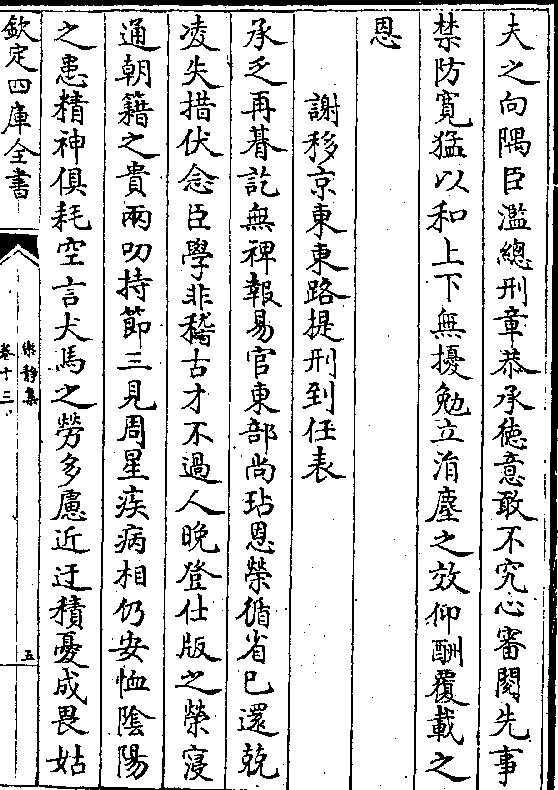 夫之向隅臣濫總刑章恭承徳意敢不究心審閱先事
禁防寛猛以和上下無擾勉立涓塵之效仰酬覆載之
恩
謝移京東東路提刑到任表
承乏再朞訖無裨報易官東部尚玷恩榮循省已還兢
凌失措伏念臣學非稽古才不過人晚登仕版之榮寖
通朝籍之貴兩叨持節三見周星疾病相仍安恤陰陽
之患精神俱耗空言犬馬之勞多慮近迂積憂成畏姑
欽定四庫全書
樂静集
卷十三
五